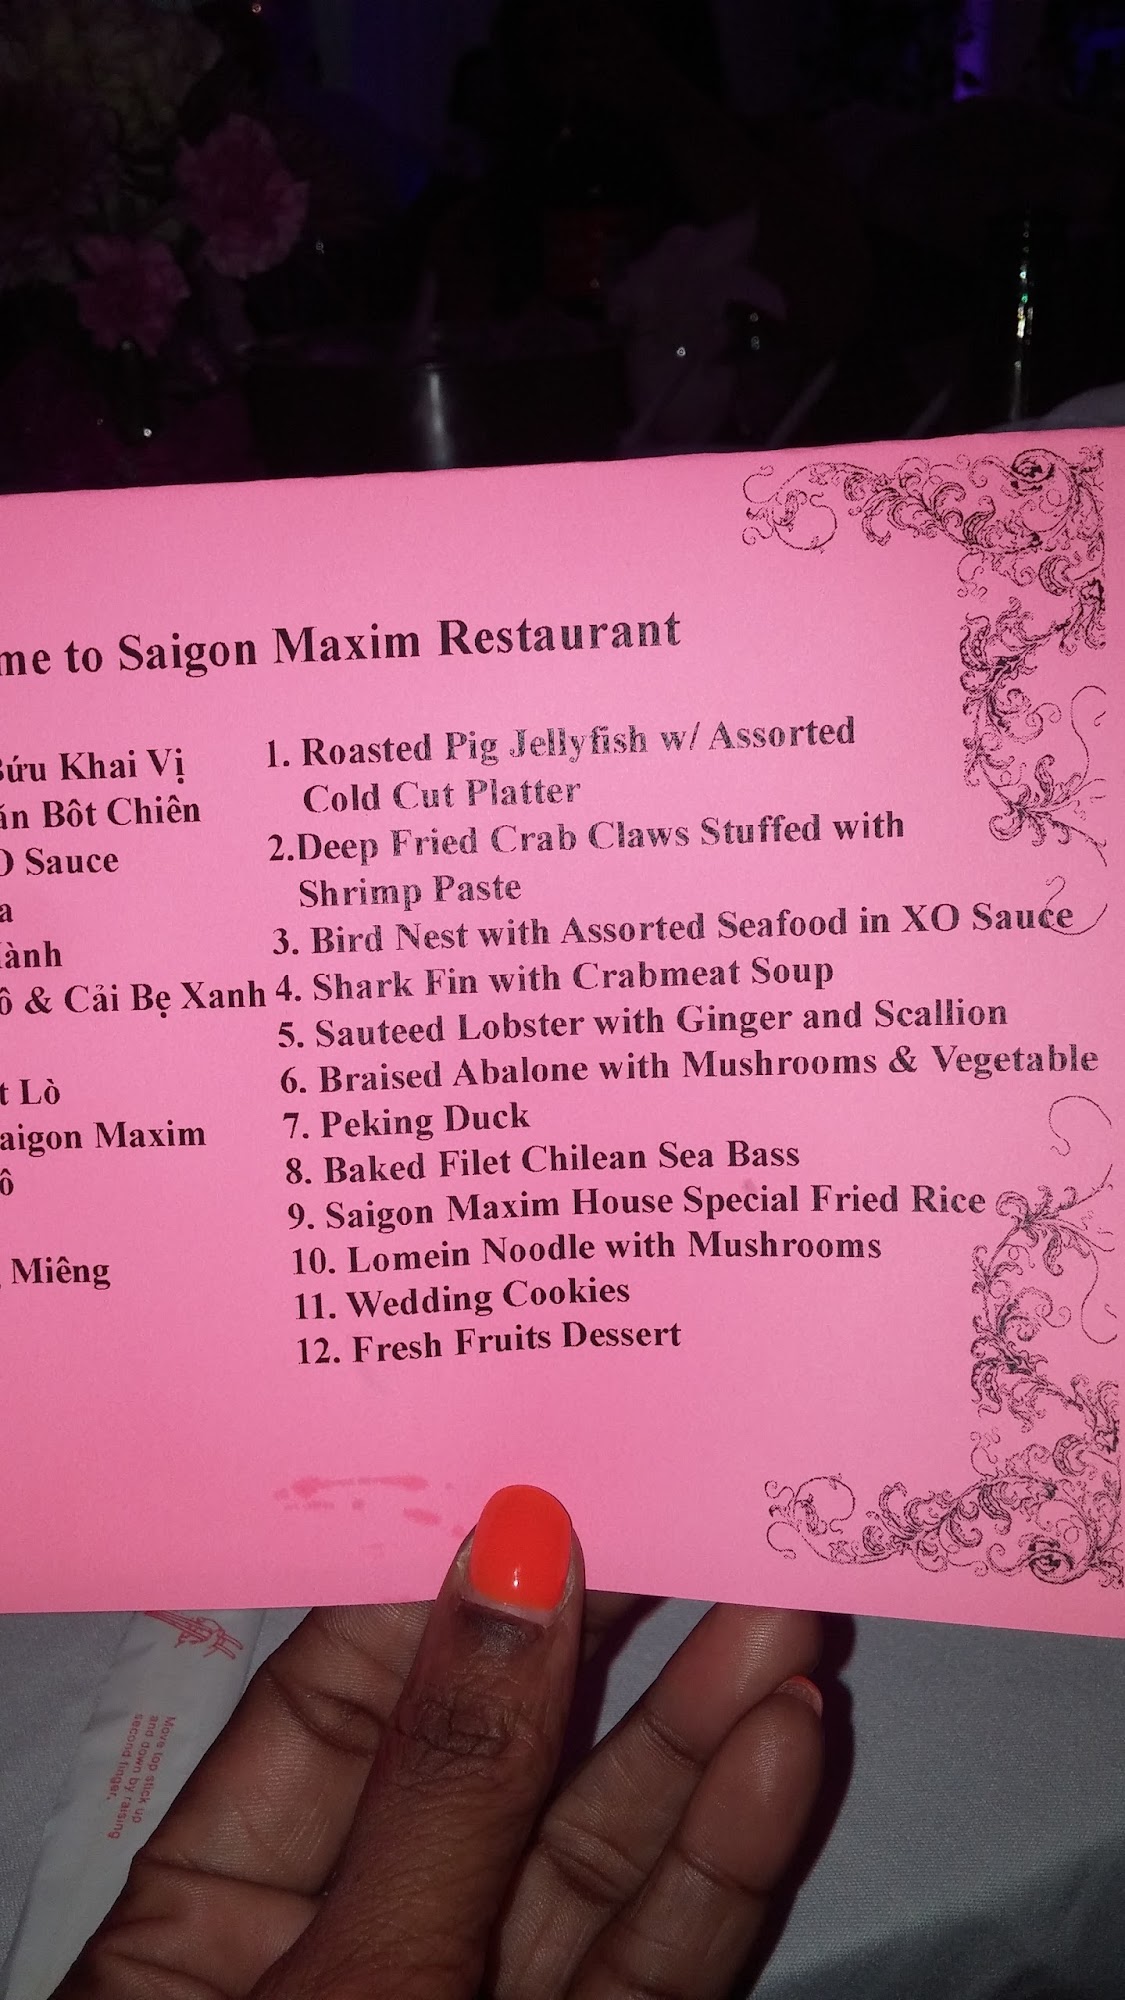 me to Saigon Maxim Restaurant
Bứu Khai Vị
Bôt Chiên
O Sauce
a
Hành
ô & Cải Bẹ Xanh
t Lò
aigon Maxim
ô
Miêng
1. Roasted Pig Jellyfish w/ Assorted
Cold Cut Platter
2.Deep Fried Crab Claws Stuffed with
Shrimp Paste
3. Bird Nest with Assorted Seafood in XO Sauce
4. Shark Fin with Crabmeat Soup
5. Sauteed Lobster with Ginger and Scallion
6. Braised Abalone with Mushrooms & Vegetable
7. Peking Duck
8. Baked Filet Chilean Sea Bass
9. Saigon Maxim House Special Fried Rice
10. Lomein Noodle with Mushrooms
11. Wedding Cookies
12. Fresh Fruits Dessert
Move top stick up
and down by raising
second finger.